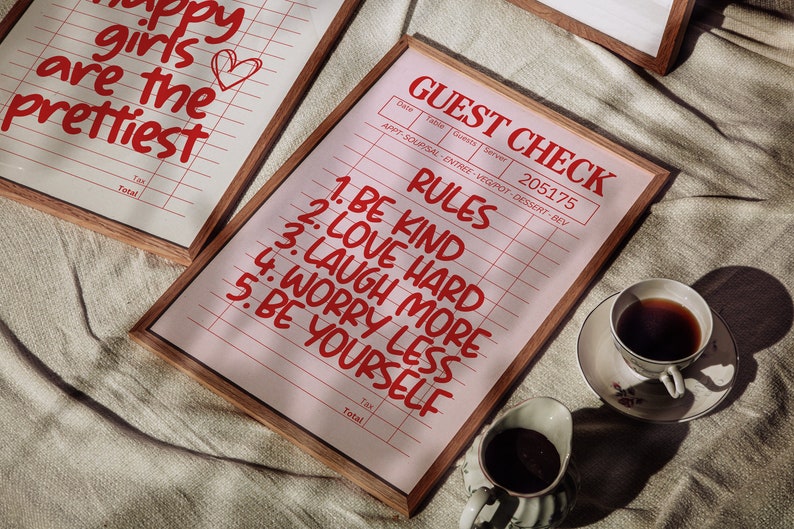 happy
girls
are the
prettiest
Tax
Total
GUEST CHECK
Date Table Guests Server 205175
APPT-SOUP/SAL - ENTREE - VEG/POT - DESSERT - BEV
RULES
1. BE KIND
2. LOVE HARD
3. LAUGH MORE
4. WORRY LESS
5. BE YOURSELF
Tax
Total